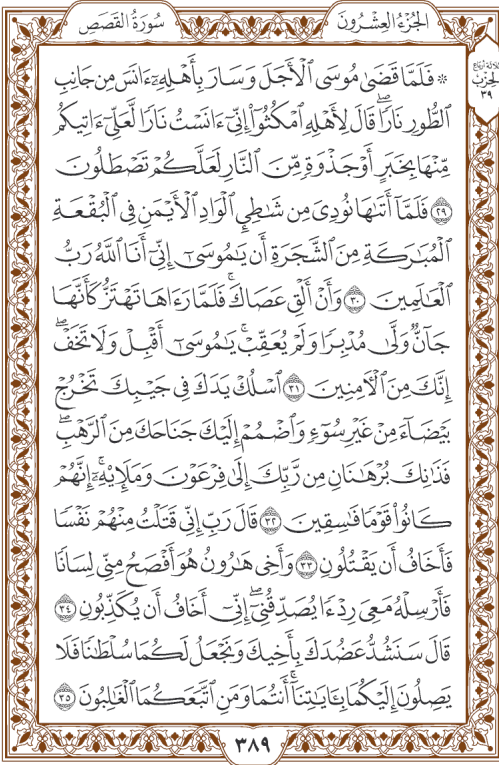 الجُزْءُ العِشْرُونَ
سُورَةُ القَصَصِ
ثلاثة أرباع
الحزب
٣٩
۞ فَلَمَّا قَضَىٰ مُوسَى ٱلْأَجَلَ وَسَارَ بِأَهْلِهِۦٓ ءَانَسَ مِن جَانِبِ
ٱلطُّورِ نَارًاۖ قَالَ لِأَهْلِهِ ٱمْكُثُوٓاْ إِنِّىٓ ءَانَسْتُ نَارًا لَّعَلِّىٓ ءَاتِيكُم
مِّنْهَا بِخَبَرٍ أَوْ جَذْوَةٍ مِّنَ ٱلنَّارِ لَعَلَّكُمْ تَصْطَلُونَ
٢٩ فَلَمَّآ أَتَىٰهَا نُودِىَ مِن شَـٰطِئِ ٱلْوَادِ ٱلْأَيْمَنِ فِى ٱلْبُقْعَةِ
ٱلْمُبَـٰرَكَةِ مِنَ ٱلشَّجَرَةِ أَن يَـٰمُوسَىٰٓ إِنِّىٓ أَنَا ٱللَّهُ رَبُّ
ٱلْعَـٰلَمِينَ ٣٠ وَأَنْ أَلْقِ عَصَاكَۚ فَلَمَّا رَءَاهَا تَهْتَزُّ كَأَنَّهَا
جَآنٌّ وَلَّىٰ مُدْبِرًا وَلَمْ يُعَقِّبْۚ يَـٰمُوسَىٰٓ أَقْبِلْ وَلَا تَخَفْۖ
إِنَّكَ مِنَ ٱلْـَٔامِنِينَ ٣١ ٱسْلُكْ يَدَكَ فِى جَيْبِكَ تَخْرُجْ
بَيْضَآءَ مِنْ غَيْرِ سُوٓءٍ وَٱضْمُمْ إِلَيْكَ جَنَاحَكَ مِنَ ٱلرَّهْبِۖ
فَذَٰنِكَ بُرْهَـٰنَانِ مِن رَّبِّكَ إِلَىٰ فِرْعَوْنَ وَمَلَإِيْهِۦٓۚ إِنَّهُمْ
كَانُواْ قَوْمًا فَـٰسِقِينَ ٣٢ قَالَ رَبِّ إِنِّى قَتَلْتُ مِنْهُمْ نَفْسًا
فَأَخَافُ أَن يَقْتُلُونِ ٣٣ وَأَخِى هَـٰرُونُ هُوَ أَفْصَحُ مِنِّى لِسَانًا
فَأَرْسِلْهُ مَعِىَ رِدْءًا يُصَدِّقُنِىٓۖ إِنِّىٓ أَخَافُ أَن يُكَذِّبُونِ ٣٤
قَالَ سَنَشُدُّ عَضُدَكَ بِأَخِيكَ وَنَجْعَلُ لَكُمَا سُلْطَـٰنًا فَلَا
يَصِلُونَ إِلَيْكُمَا بِـَٔايَـٰتِنَآۚ أَنتُمَا وَمَنِ ٱتَّبَعَكُمَا ٱلْغَـٰلِبُونَ ٣٥
٣٨٩